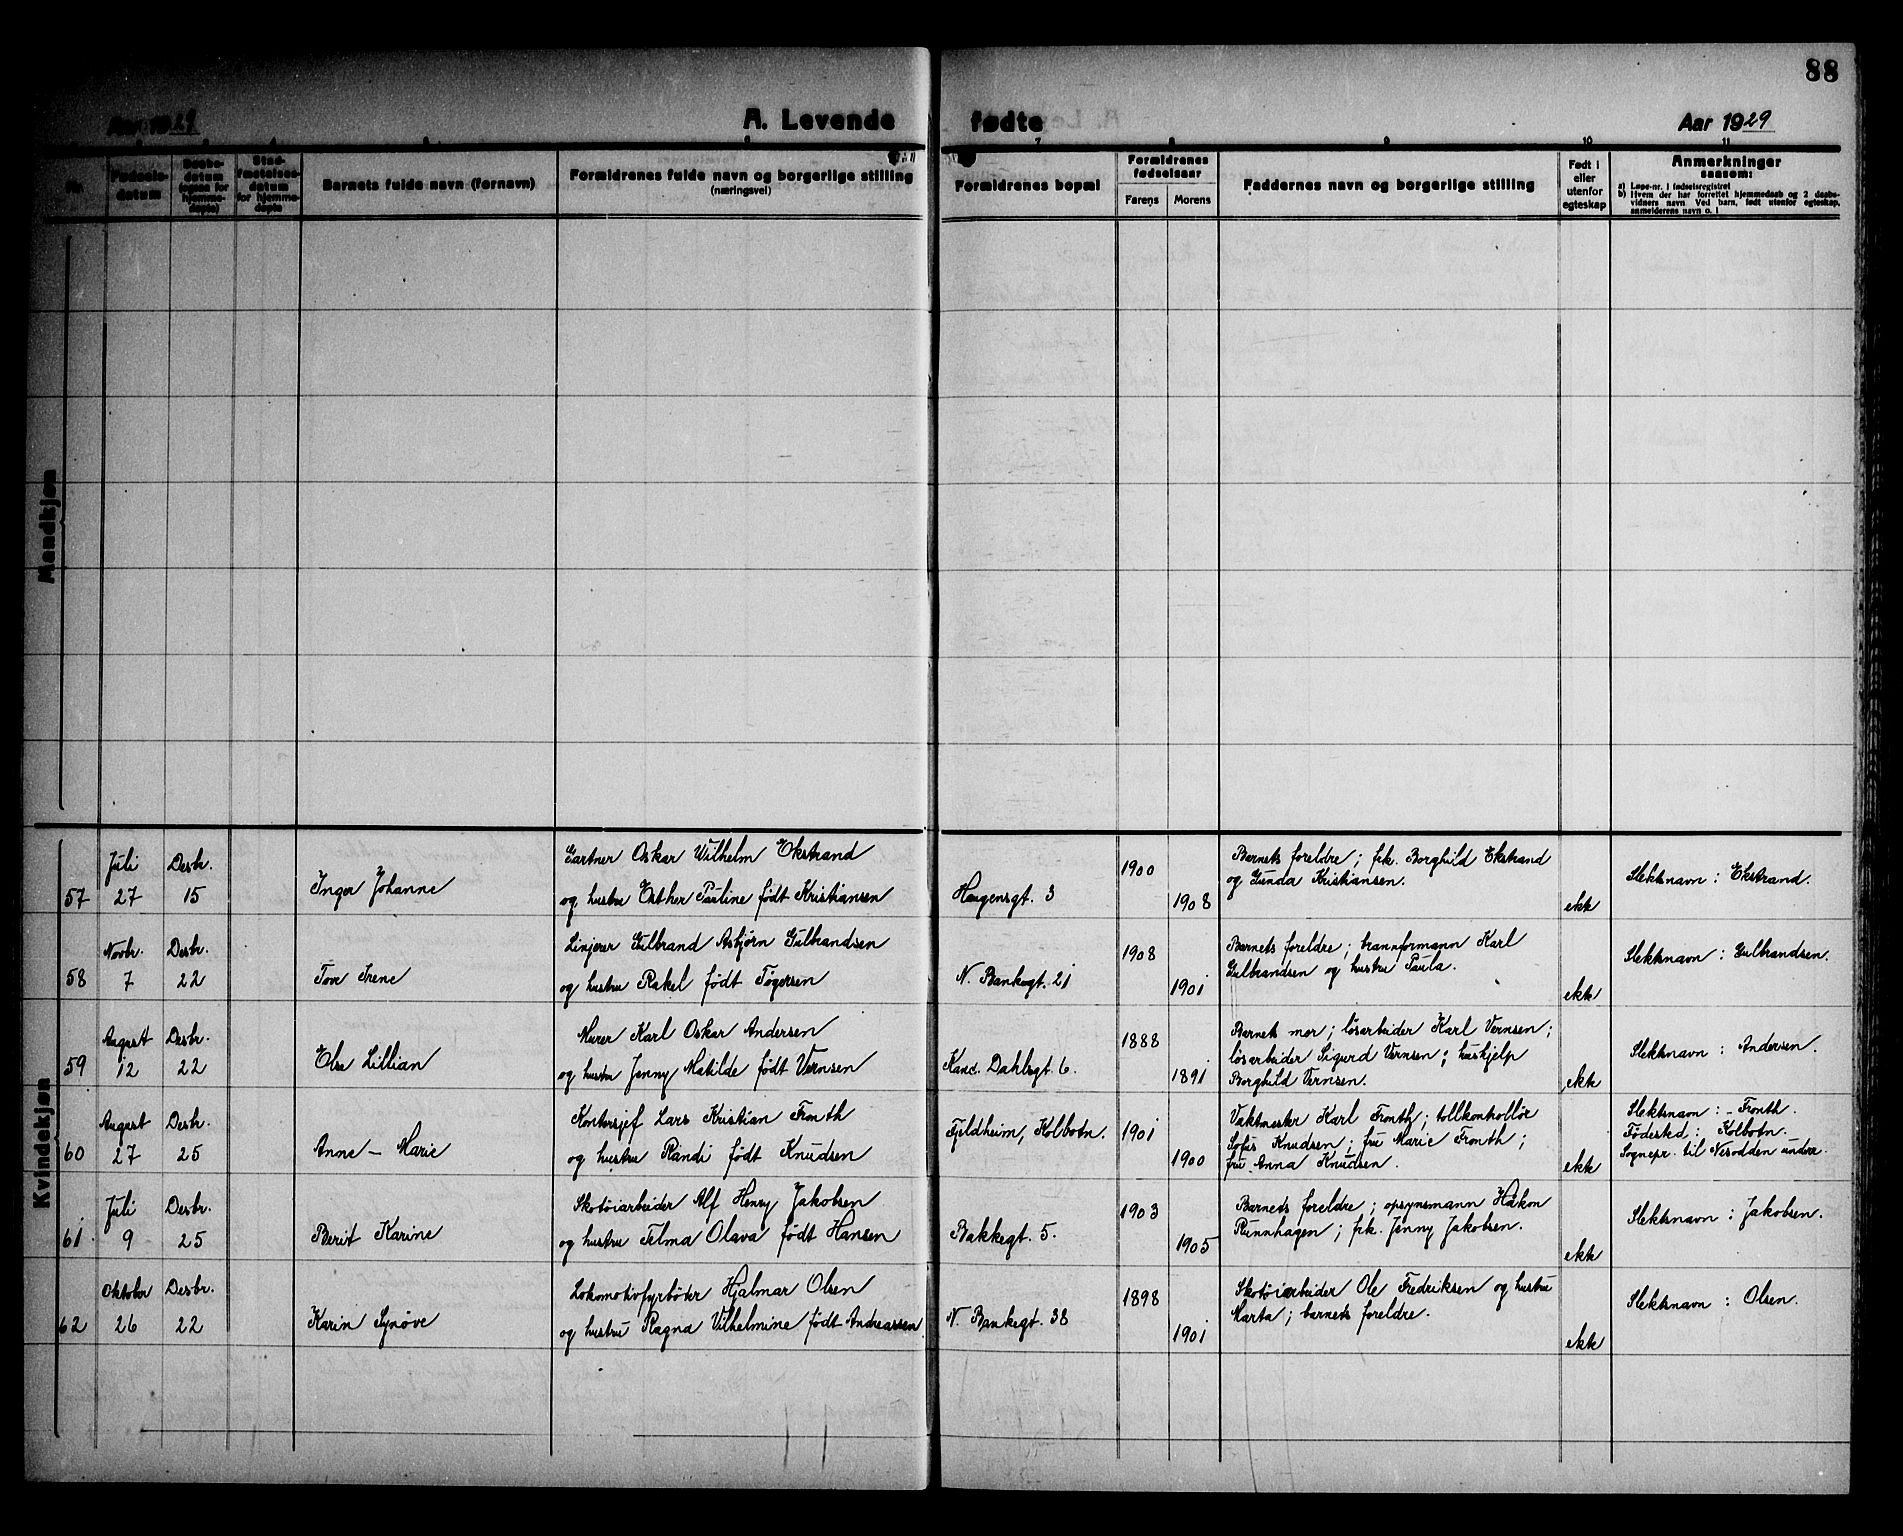 88
Aar 1929 A. Levende fødte Aar 1929
4 6 7 8 9 10 11
Nr.
Fødsels-
datum
Daabs-
datum
(ogsaa for
hjemme-
døpte)
Stad-
fæstelses-
datum
for hjemme-
døpte
Barnets fulde navn (fornavn)
Forældrenes fulde navn og borgerlige stilling
(næringsvei)
Forældrenes bopæl
Forældrenes
fødselsaar
Farens Morens
Faddernes navn og borgerlige stilling
Født i
eller
utenfor
egteskap
Anmerkninger
saasom:
a) Løpe-nr. i fødselsregistret
b) Hvem der har forrettet hjemmedaab og 2 daabs-
vidners navn Ved barn, født utenfor egteskap,
anmelderens navn o. l
Mandkjøn
Kvindekjøn
57
Juli
27
Desbr.
15
Inger Johanne
Gartner Oskar Wilhelm Ekstrand
og hustru Esther Pauline født Kristiansen
Haugensgt. 3
1900
1908
Barnets foreldre; frk. Borghild Ekstrand
og Gunda Kristiansen.
ekte
Slektsnavn: Ekstrand.
58
Novbr.
7
Desbr.
22
Tove Irene
Linjerer Gulbrand Asbjørn Gulbrandsen
og hustru Rakel født Tøgersen
N. Bankegt. 21
1908
1901
Barnets foreldre; brannformann Karl
Gulbrandsen og hustru Paula.
ekte
Slektsnavn: Gulbrandsen.
59
August
12
Desbr.
22
Else Lillian
Murer Karl Oskar Andersen
og hustru Jenny Matilde født Vernsen
Kanc. Dahlsgt. 6.
1888
1891
Barnets mor; løsarbeider Karl Vernsen;
løsarbeider Sigurd Vernsen; hushjelp
Borghild Vernsen.
ekte
Slektsnavn: Andersen.
60
August
27
Desbr.
25
Anne - Marie
Kontorsjef Lars Kristian Fronth
og hustru Randi født Knudsen
Fjeldheim, Kolbotn.
1901
1900
Vaktmester Karl Fronth; tollkontrollør
Sofus Knudsen; fru Marie Fronth;
fru Anna Knudsen.
ekte
Slektsnavn: - Fronth.
Fødested: Kolbotn.
Sognepr. til Nesodden underr.
61
Juli
9
Desbr.
25
Berit Karine
Skotøiarbeider Alf Henry Jakobsen
og hustru Telma Olava født Hansen
Bakkegt. 5.
1903
1905
Barnets foreldre; opsynsmann Håkon
Runnhagen; frk. Jenny Jakobsen.
ekte
Slektsnavn: Jakobsen.
62
Oktober
26
Desbr.
22
Karin Synøve
Lokomotivfyrbøter Hjalmar Olsen
og hustru Ragna Vilhelmine født Andreassen
N. Bankegt. 38
1898
1901
Skotøiarbeider Ole Fredriksen og hustru
Marta; barnets foreldre.
ekte
Slektsnavn: Olsen.